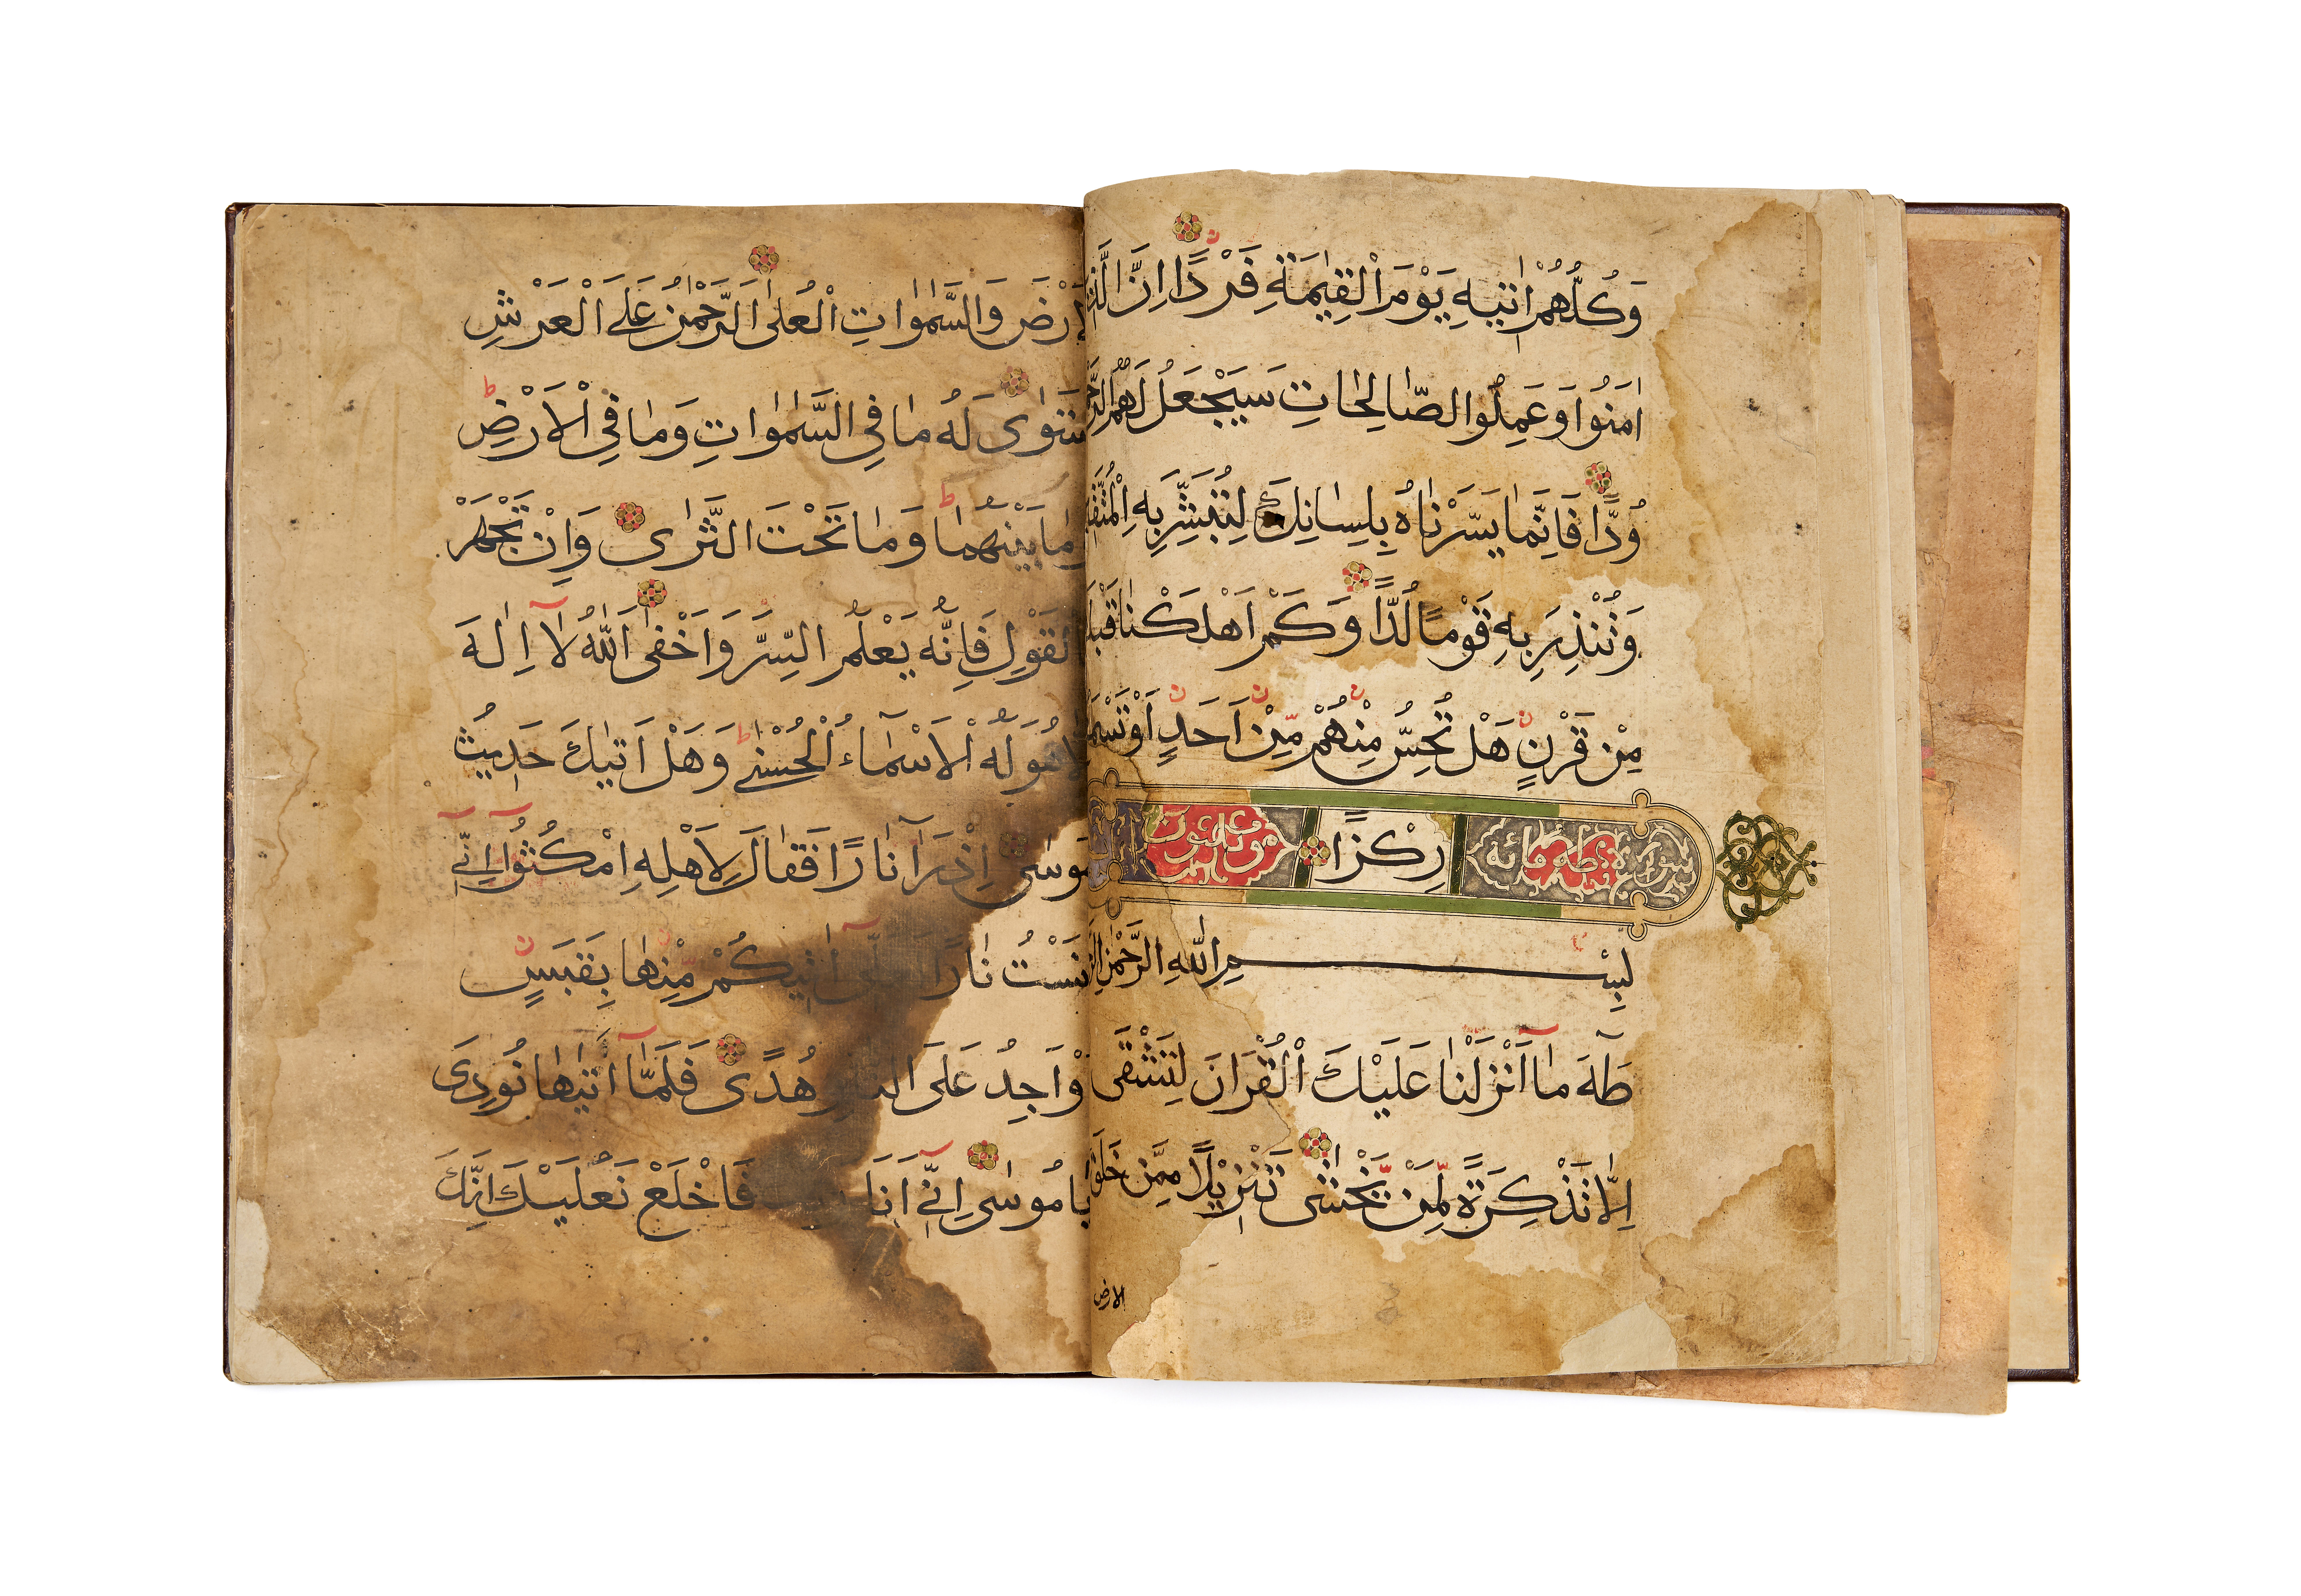 وَكُلُّهُمْ اٰتٖيهِ يَوْمَ الْقِيٰمَةِ فَرْدًا اِنَّ
اٰمَنُوا وَعَمِلُوا الصَّالِحَاتِ سَيَجْعَلُ لَهُمُ
وُدًّا فَاِنَّمَا يَسَّرْنَاهُ بِلِسَانِكَ لِتُبَشِّرَ بِهِ
وَتُنْذِرَ بِهِ قَوْمًا لُدًّا وَكَمْ اَهْلَكْنَا
مِنْ قَرْنٍ هَلْ تُحِسُّ مِنْهُمْ مِنْ اَحَدٍ اَوْ
سورة طه مائة رِكْزًا وثلثون
بِسْمِ اللّٰهِ الرَّحْمٰنِ
طٰهٰ مَا اَنْزَلْنَا عَلَيْكَ الْقُرْاٰنَ لِتَشْقٰى
اِلَّا تَذْكِرَةً لِمَنْ يَخْشٰى تَنْزِيلًا مِمَّنْ خَلَقَ
الارض
وَالسَّمٰوَاتِ الْعُلٰى اَلرَّحْمٰنُ عَلَى الْعَرْشِ
لَهُ مَا فِي السَّمٰوَاتِ وَمَا فِي الْاَرْضِ
بَيْنَهُمَا وَمَا تَحْتَ الثَّرٰى وَاِنْ تَجْهَرْ
فَاِنَّهُ يَعْلَمُ السِّرَّ وَاَخْفٰى اَللّٰهُ لَا اِلٰهَ
هُوَ لَهُ الْاَسْمَاءُ الْحُسْنٰى وَهَلْ اَتٰيكَ حَدٖيثُ
مُوسٰى اِذْ رَاٰ نَارًا فَقَالَ لِاَهْلِهِ امْكُثُوا اِنّٖي
نَارًا اٰتٖيكُمْ مِنْهَا بِقَبَسٍ
اَوْ اَجِدُ عَلَى هُدًى فَلَمَّا اَتٰيهَا نُودِيَ
يَا مُوسٰى اِنّٖي اَنَا فَاخْلَعْ نَعْلَيْكَ اِنَّكَ